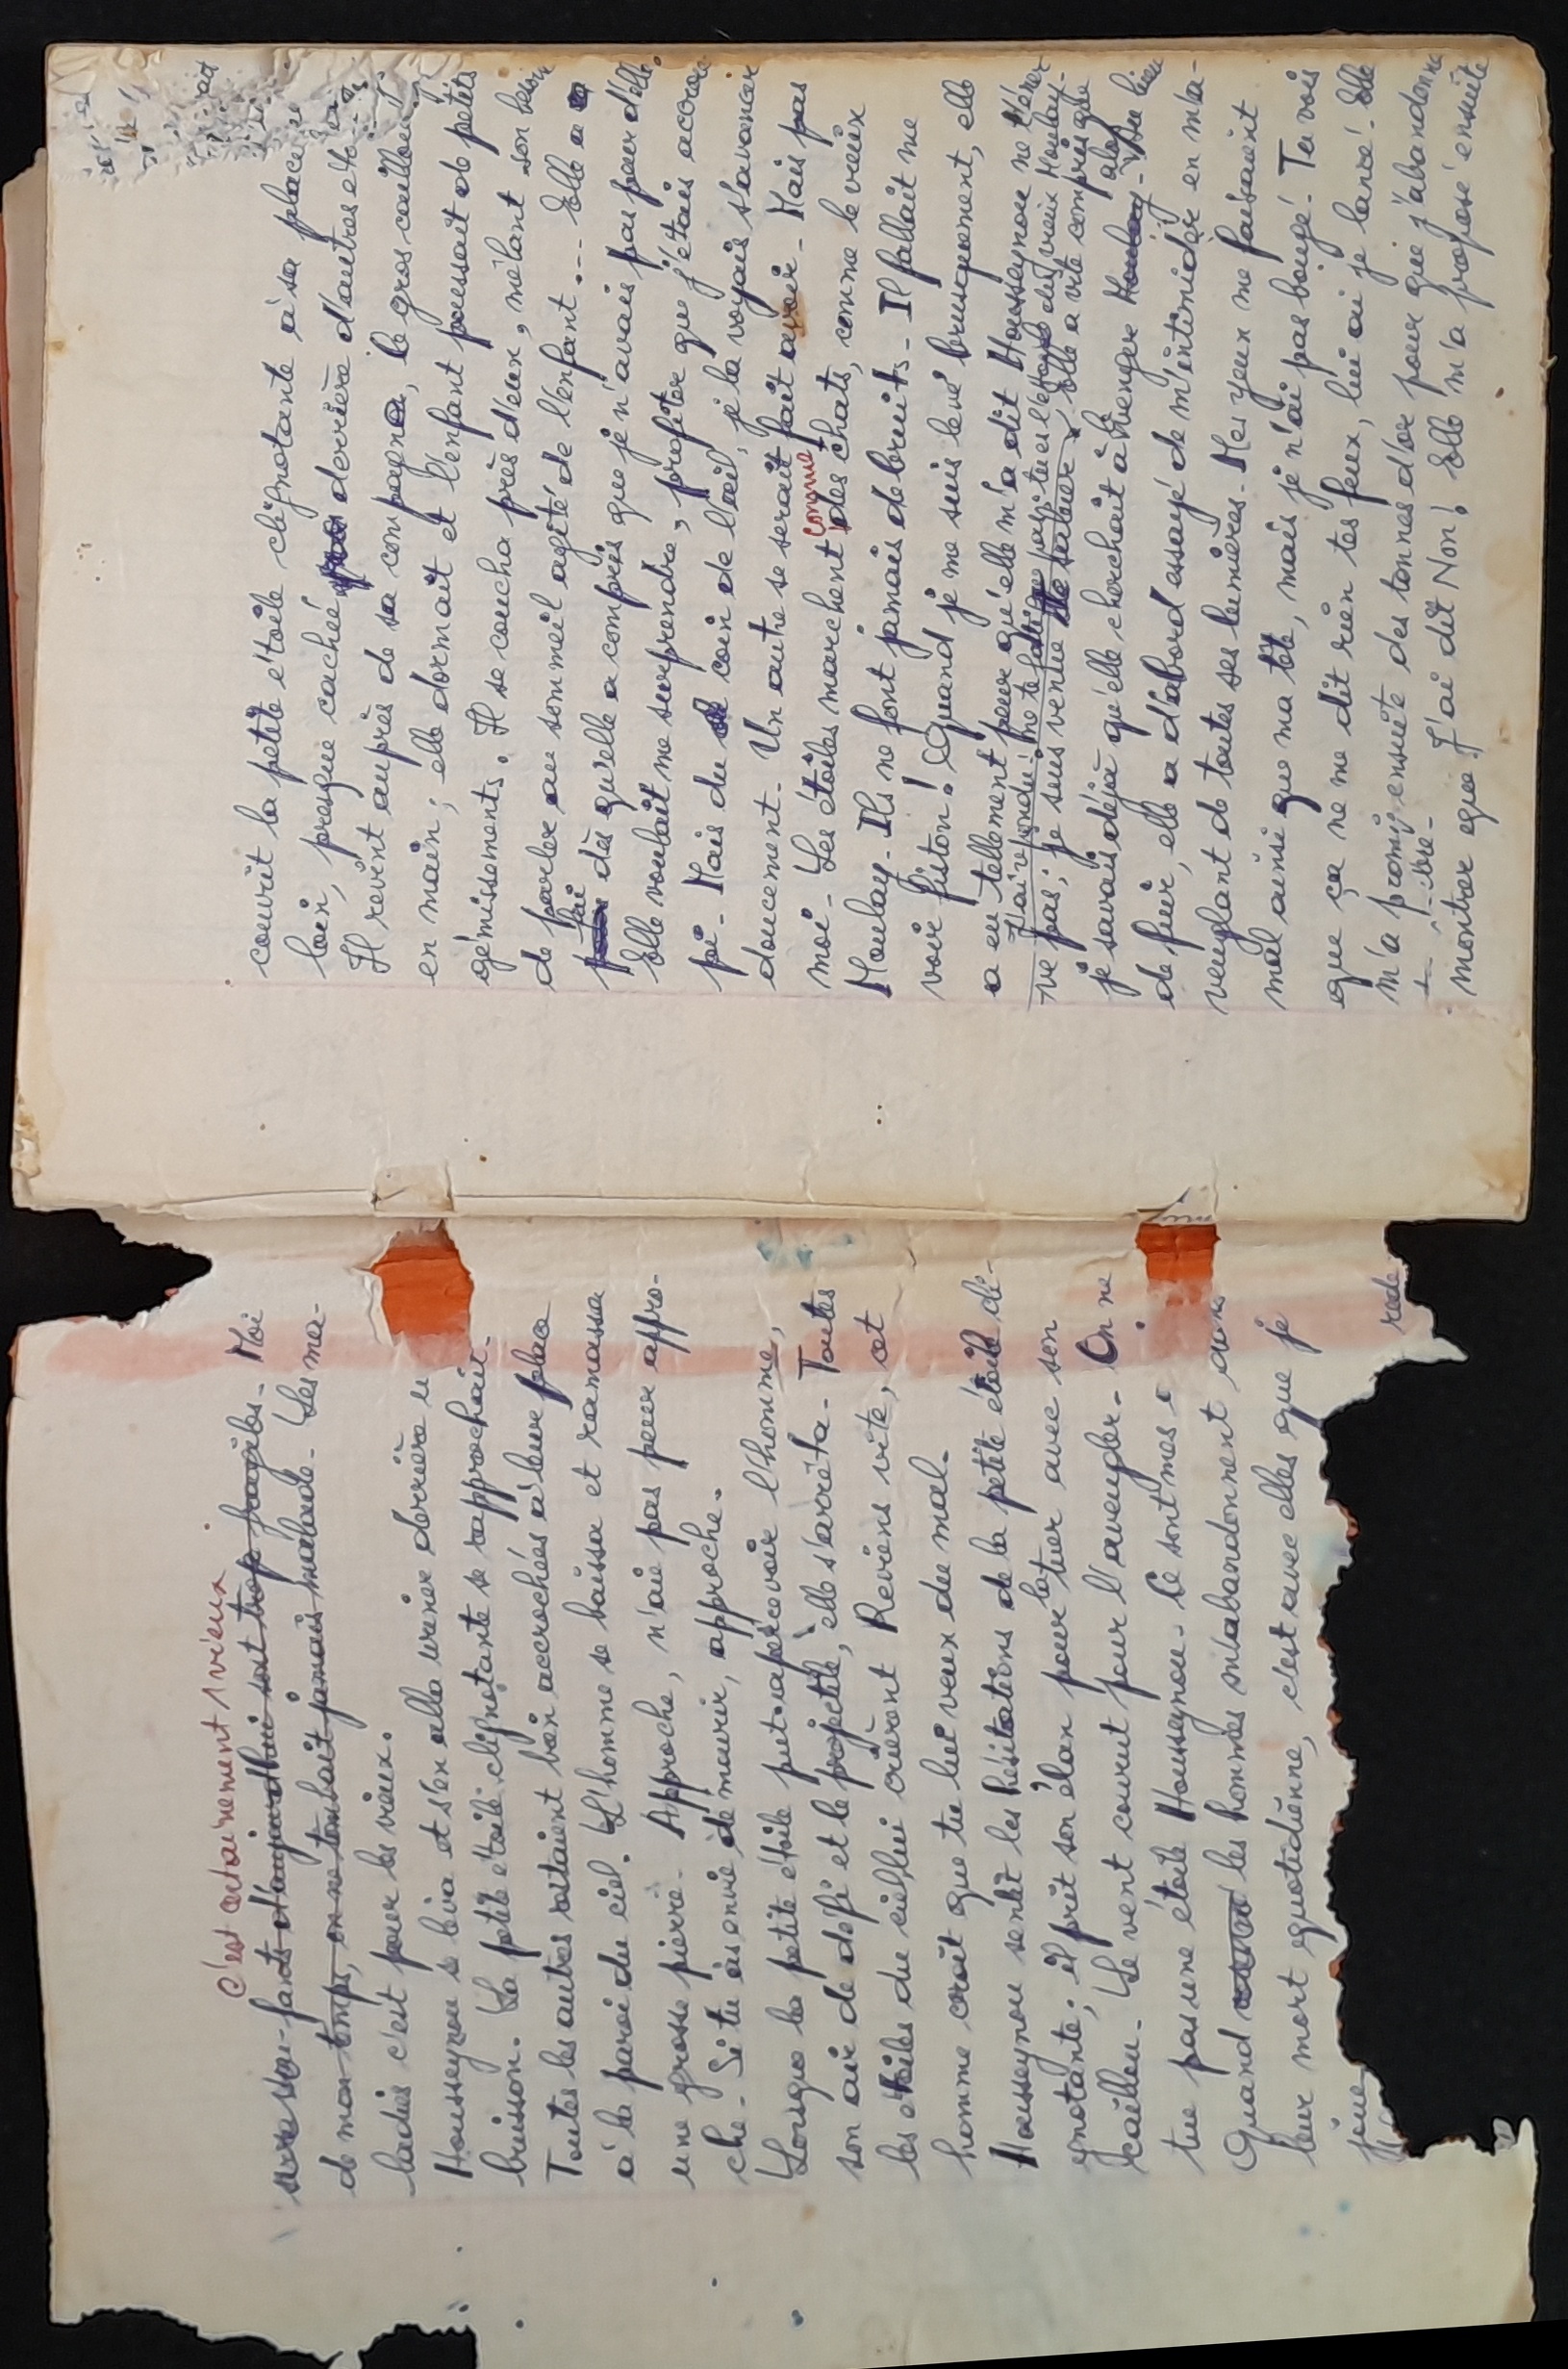 C'est certainement 1 vieux
fants d'aujourdhui sont trop fragiles. Moi
de mon temps, on ne tombait jamais malade. Les ma-
ladies c'est pour les vieux.
Housseynou se leva et s'en alla uriner derrière u
buisson. La petite étoile clignotante se rapprochait.
Toutes les autres restaient bien accrochées à leur place
à la paroi du ciel. L'homme se baissa et ramassa
une grosse pierre. Approche, n'aie pas peur appro-
che. Si tu as envie de mourir, approche.
Lorsque la petite étoile put apercevoir l'homme,
son air de défi et le projectile, elle s'arrêta. Toutes
les étoiles du ciel lui crièrent Reviens vite, cet
homme croit que tu lui veux du mal.
Housseynou sentit les hésitations de la petite étoile cli-
gnotante; il prit son élan pour la tuer avec son
caillou. Le vent courut pour l'aveugler. On ne
tue pas une étoile Housseynou. Ce sont mes
Quand les hommes m'abandonnent dans
leur mort quotidienne, c'est avec elles que je
joue
rade
couvrit la petite étoile clignotante à sa place
loin, presque cachée derrière d'autres éto
Il revint auprès de sa compagne, le gros caillou
en main; elle dormait et l'enfant poussait de petits
gémissements. Il se coucha près d'eux, mêlant son besoin
de parler au sommeil agité de l'enfant... Elle a
fui dès qu'elle a compris que je n'avais pas peur d'elle.
Elle voulait me surprendre, profiter que j'étais accrou
pi. Mais du coin de l'œil, je la voyais s'avancer
doucement. Un autre se serait fait avoir. Mais pas
moi. Les étoiles marchent comme des chats, comme le vieux
Moulay. Ils ne font jamais de bruits. Il fallait me
voir fiston! Quand je me suis levé brusquement, elle
a eu tellement peur qu'elle m'a dit Housseynou ne t'éner
ve pas; je suis venue te saluer. Elle a vite compris que
je savais déjà qu'elle cherchait à venger Moulay. Au lieu
de fuir, elle a d'abord essayé de m'intimider en m'a-
veuglant de toutes ses lumières. Mes yeux me faisaient
mal ainsi que ma tête, mais je n'ai pas bougé. Tu vois
que ça ne me dit rien tes feux, lui ai je lancé! Elle
m'a promis ensuite des tonnes d'or pour que j'abandonne
montrer que. J'ai dit Non! Elle m'a proposé ensuite